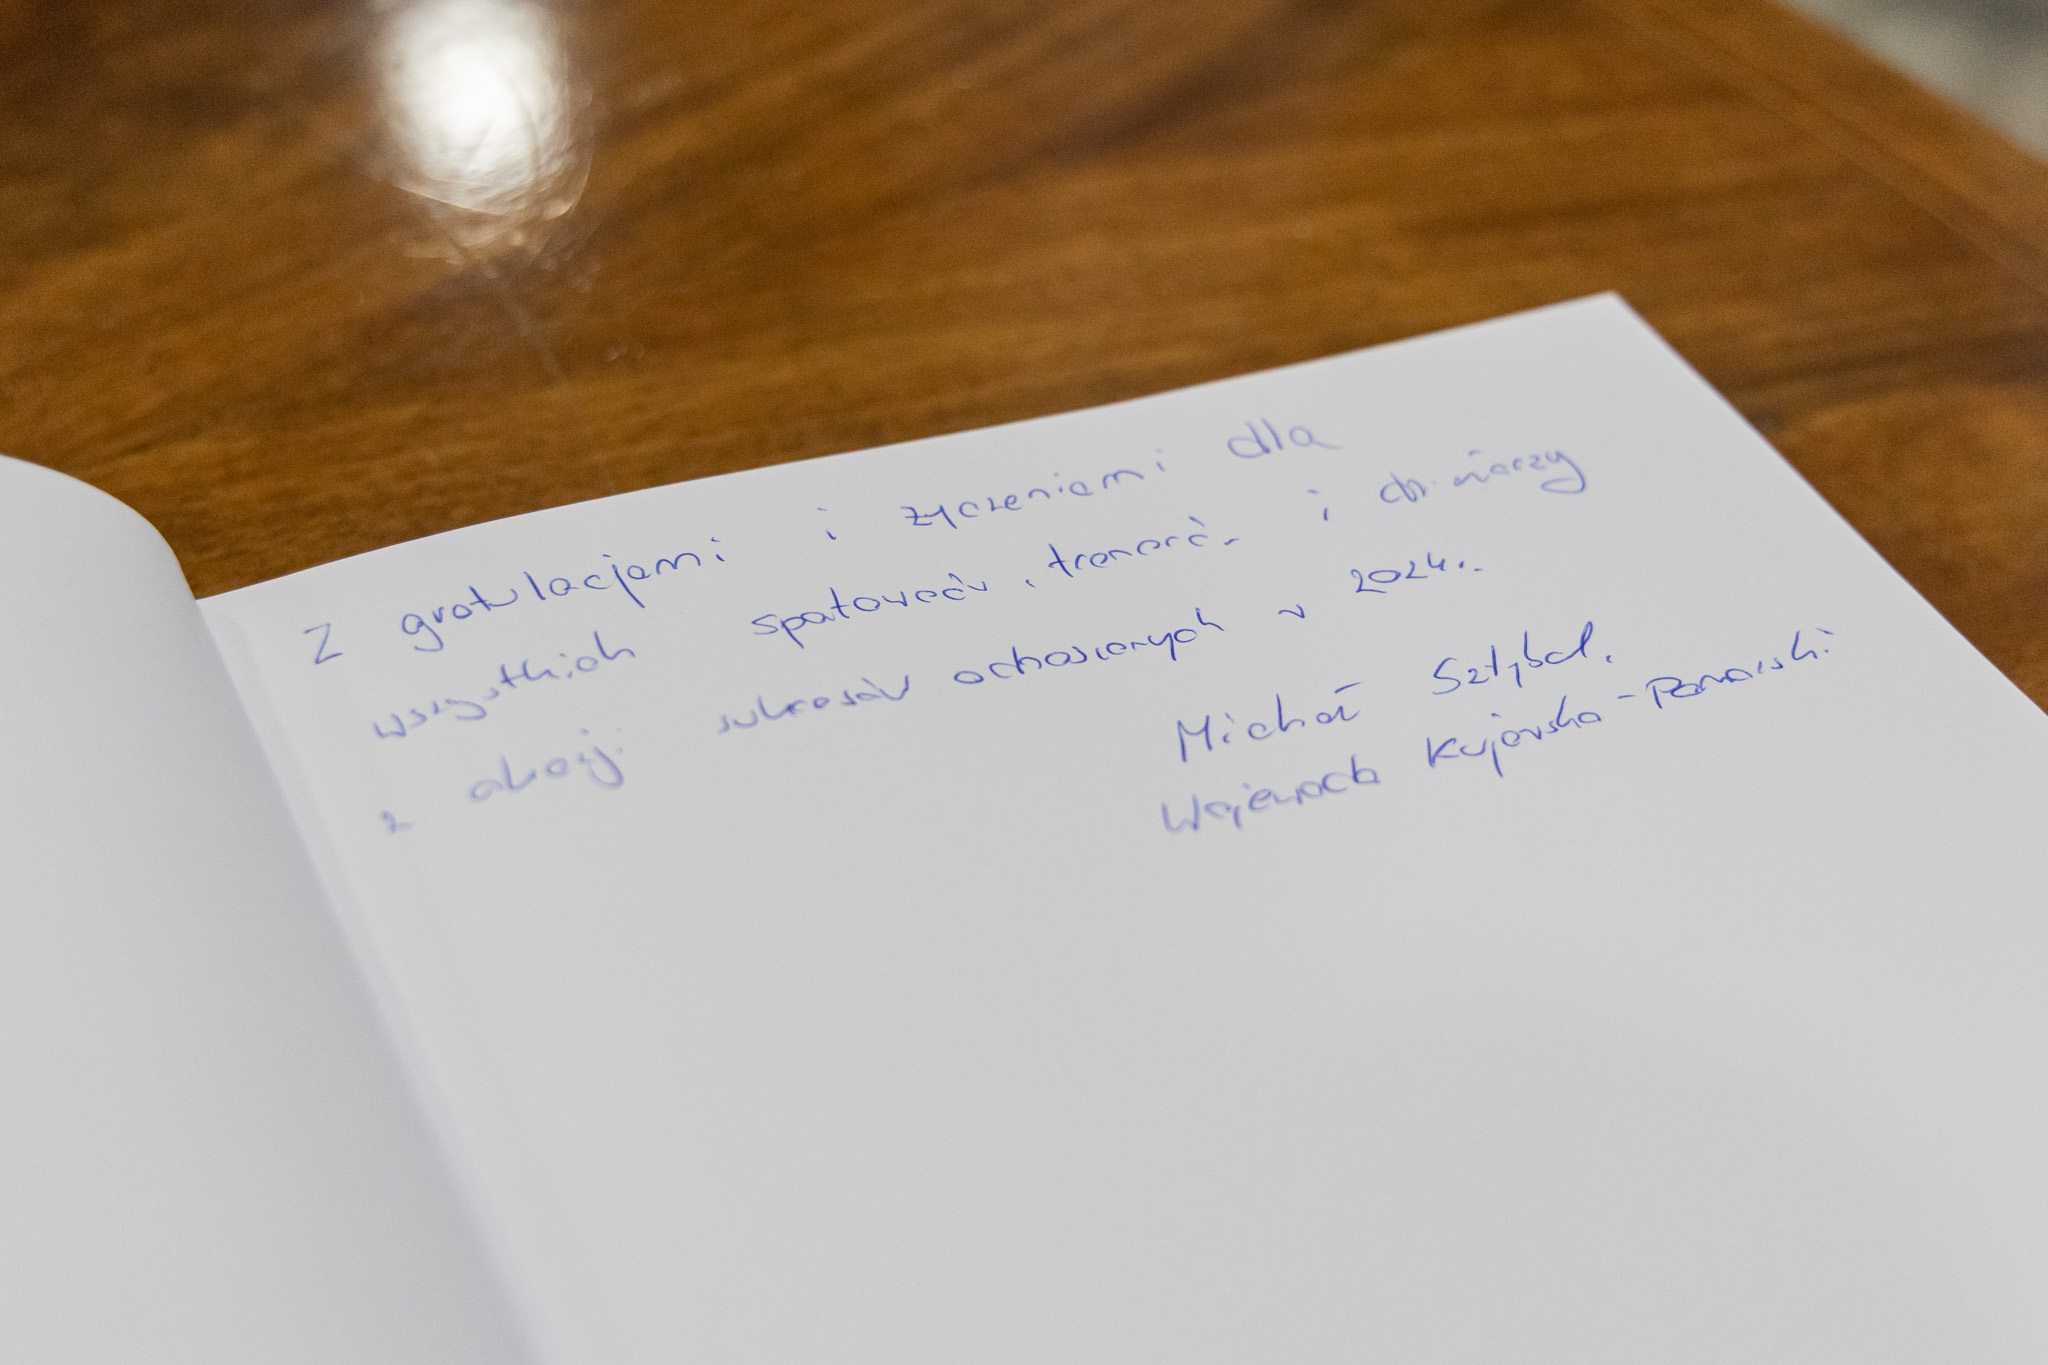 Z gratulacjami i życzeniami dla
wszystkich sportowców, trenerów i działaczy
z okazji sukcesów odnoszonych w 2024r.
Michał Sztybel.
Wojewoda Kujawsko-Pomorski